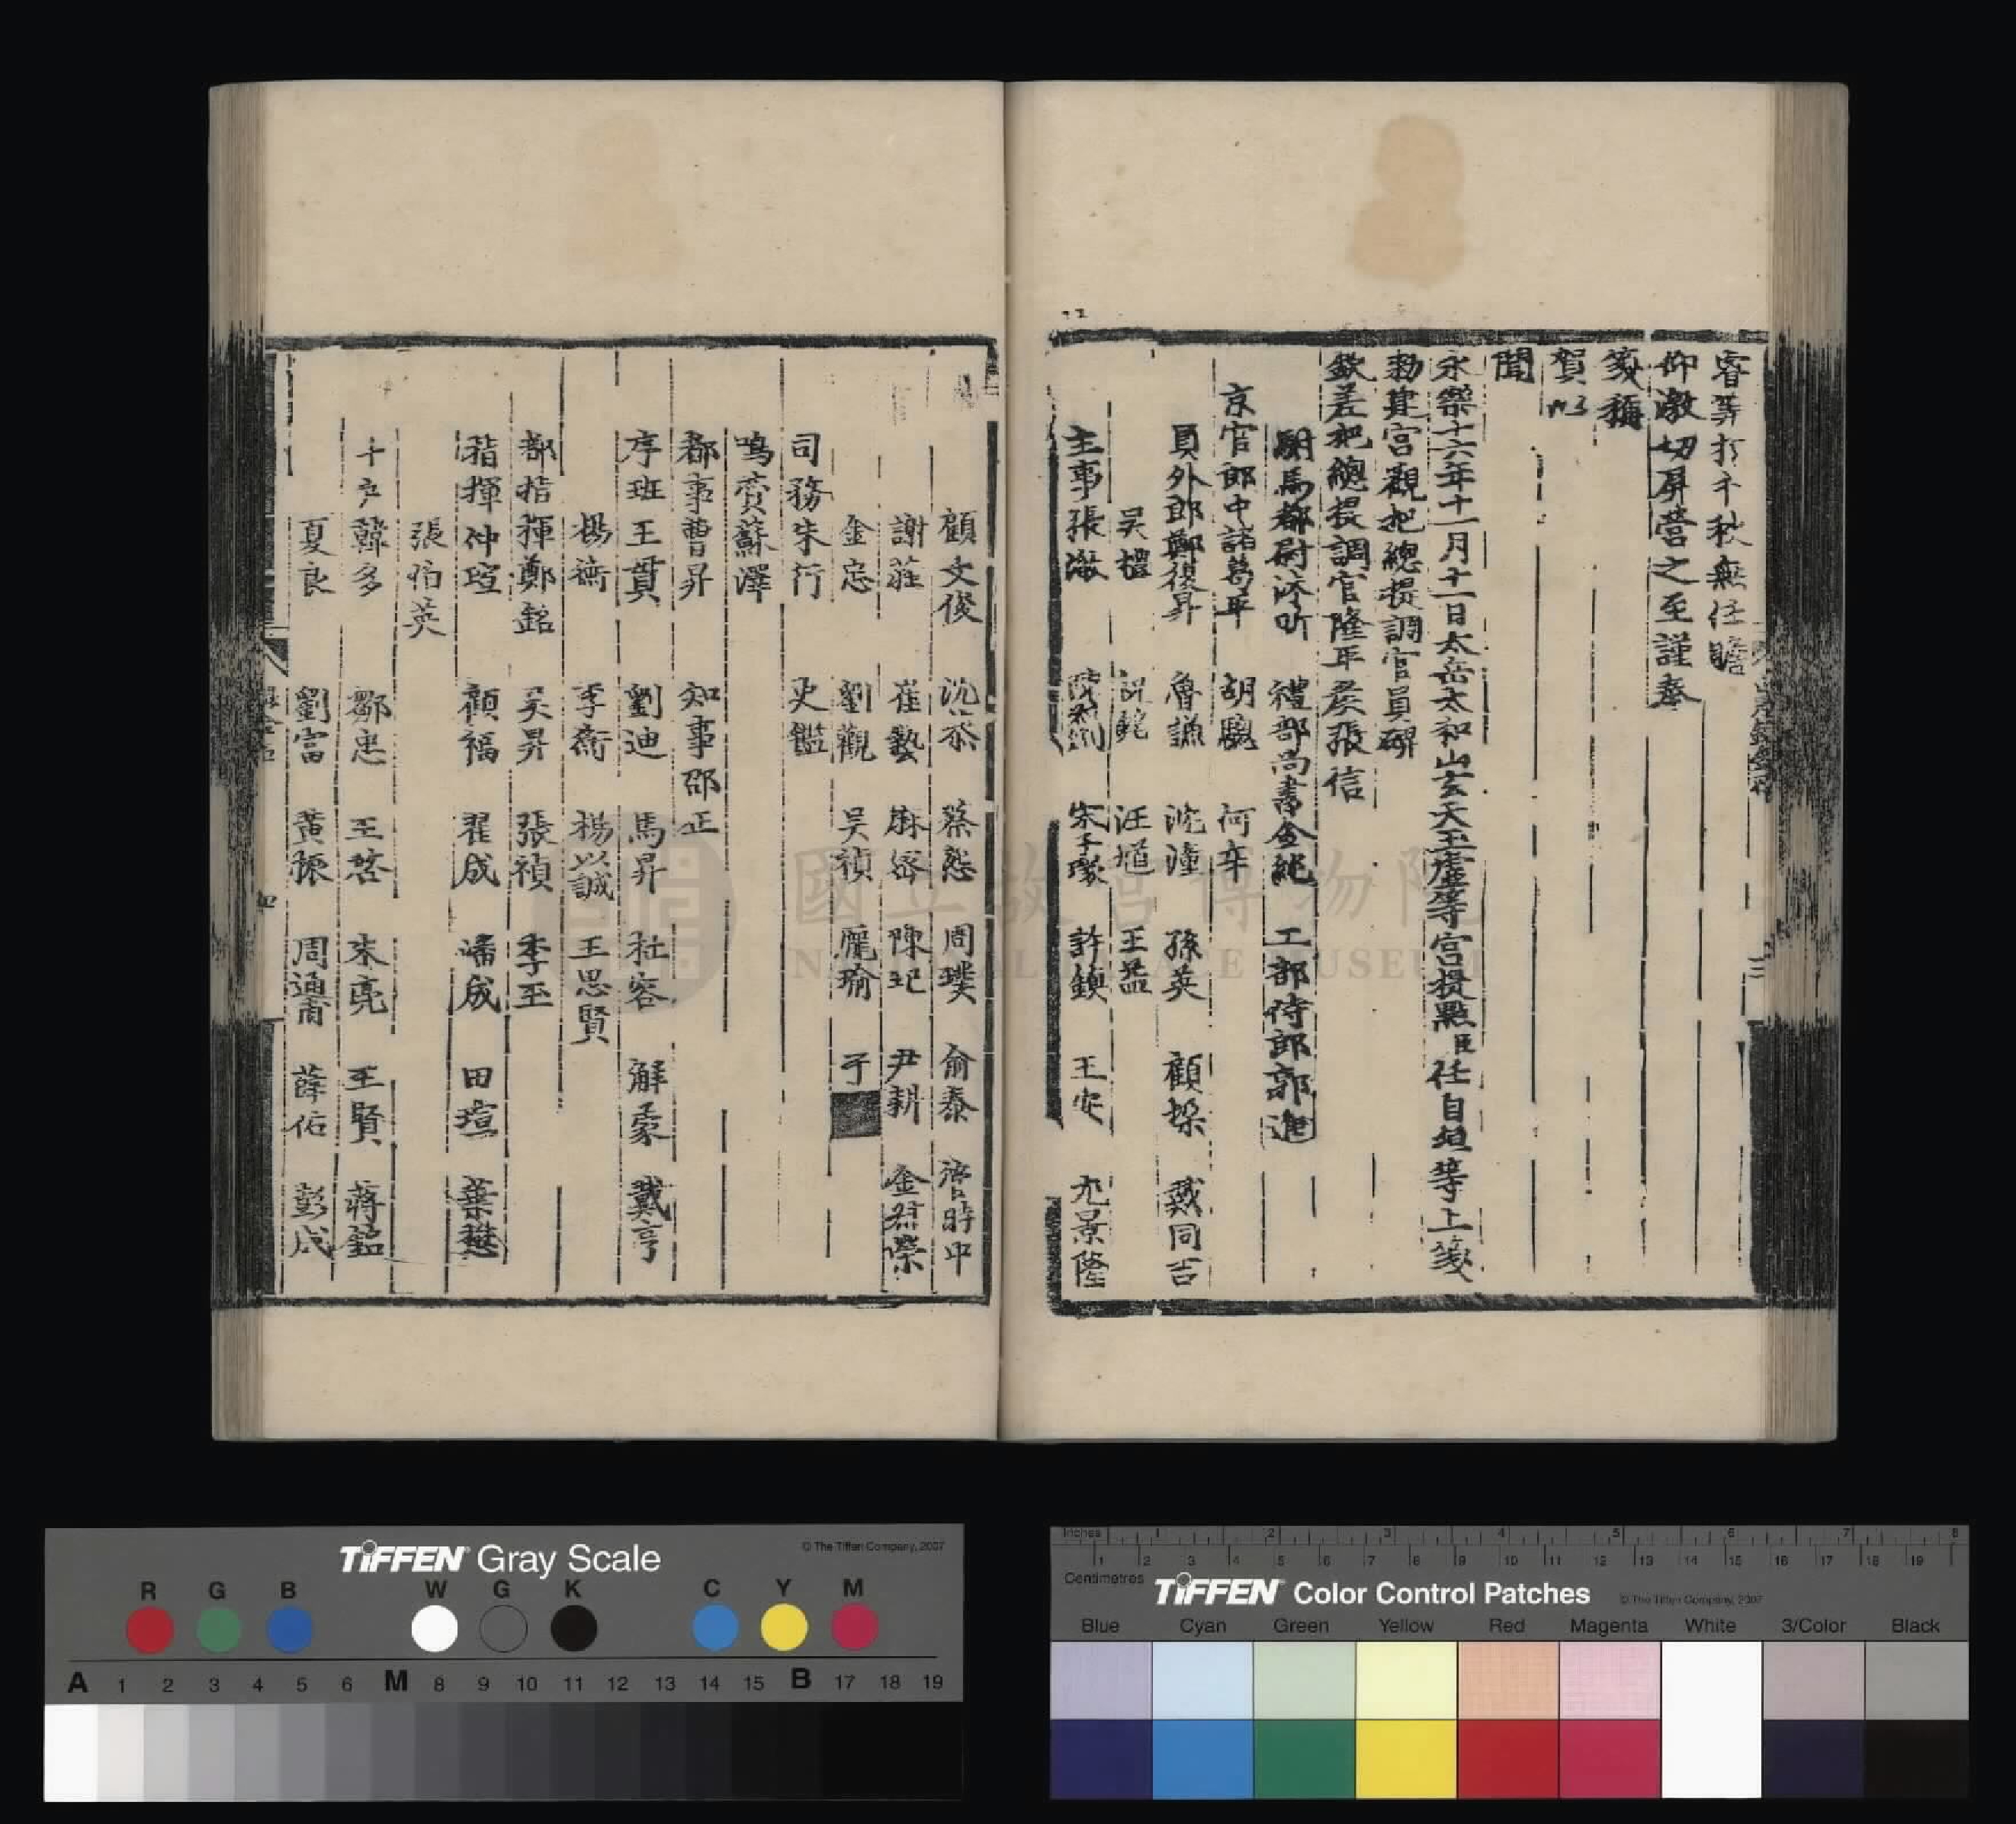 睿筭於千秋無任瞻
仰激切屏營之至謹奉
箋稱
賀以
聞
永樂十六年十二月十一日太岳太和山玄天玉虛等宮提點臣任自垣等上箋
勑建宮觀把總提調官員碑
欽差把總提調官隆平侯張信
駙馬都尉沐昕 禮部尚書金純 工部侍郎郭進
京官郎中諸葛平 胡驄 何幸
員外郎鄭復昇 魯謙 沈潼 孫英 顧傑 戴同吉
吳禮 祝銘 汪塤 王孟
主事張澂 宋子璲 許鎮 王安 尤景隆
顧文俊 沈恭 蔡慫 周璞 俞泰 濮時中
謝莊 崔藝 麻容 陳玘 尹耕 金彥榮
金忠 劉觀 吳禎 龐瑜 于
司務朱行 史鑑
鳴贊蘇澤
都事曹昇 知事邵正
序班王貫 劉迪 馬昇 杜容 解彖 戴亨
楊衡 李裔 楊以誠 王思賢
都指揮鄭銘 吳昇 張禎 李玉
指揮仲瑄 顧福 翟成 潘成 田瑄 葉懋
張伯英
千户韓多 鄒忠 王啓 朱亮 王賢 蔣鎰
夏良 劉富 黃振 周通甫 薛佑 彭成
國立故宮博物院
NATIONAL PALACE MUSEUM
TIFFEN Gray Scale
© The Tiffen Company, 2007
R G B W G K C Y M
A 1 2 3 4 5 6 M 8 9 10 11 12 13 14 15 B 17 18 19
Inches 1 2 3 4 5 6 7 8
1 2 3 4 5 6 7 8 9 10 11 12 13 14 15 16 17 18 19
Centimetres
TIFFEN Color Control Patches
© The Tiffen Company, 2007
Blue Cyan Green Yellow Red Magenta White 3/Color Black